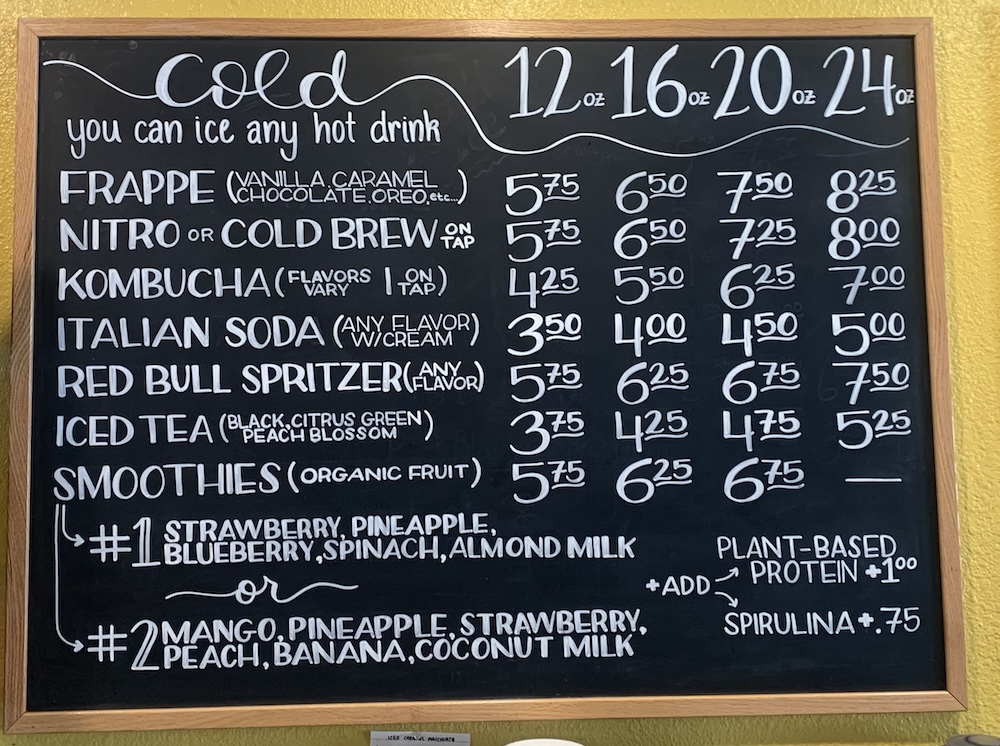 cold 12oz 16oz 20oz 24oz
you can ice any hot drink
FRAPPE (VANILLA, CARAMEL, CHOCOLATE, OREO, etc...) 5.75 6.50 7.50 8.25
NITRO OR COLD BREW ON TAP 5.75 6.50 7.25 8.00
KOMBUCHA (FLAVORS VARY | ON TAP) 4.25 5.50 6.25 7.00
ITALIAN SODA (ANY FLAVOR W/CREAM) 3.50 4.00 4.50 5.00
RED BULL SPRITZER (ANY FLAVOR) 5.75 6.25 6.75 7.50
ICED TEA (BLACK, CITRUS GREEN PEACH BLOSSOM) 3.75 4.25 4.75 5.25
SMOOTHIES (ORGANIC FRUIT) 5.75 6.25 6.75 —
#1 STRAWBERRY, PINEAPPLE,
BLUEBERRY, SPINACH, ALMOND MILK
or
#2 MANGO, PINEAPPLE, STRAWBERRY,
PEACH, BANANA, COCONUT MILK
+ADD
PLANT-BASED
PROTEIN +1.00
SPIRULINA +.75